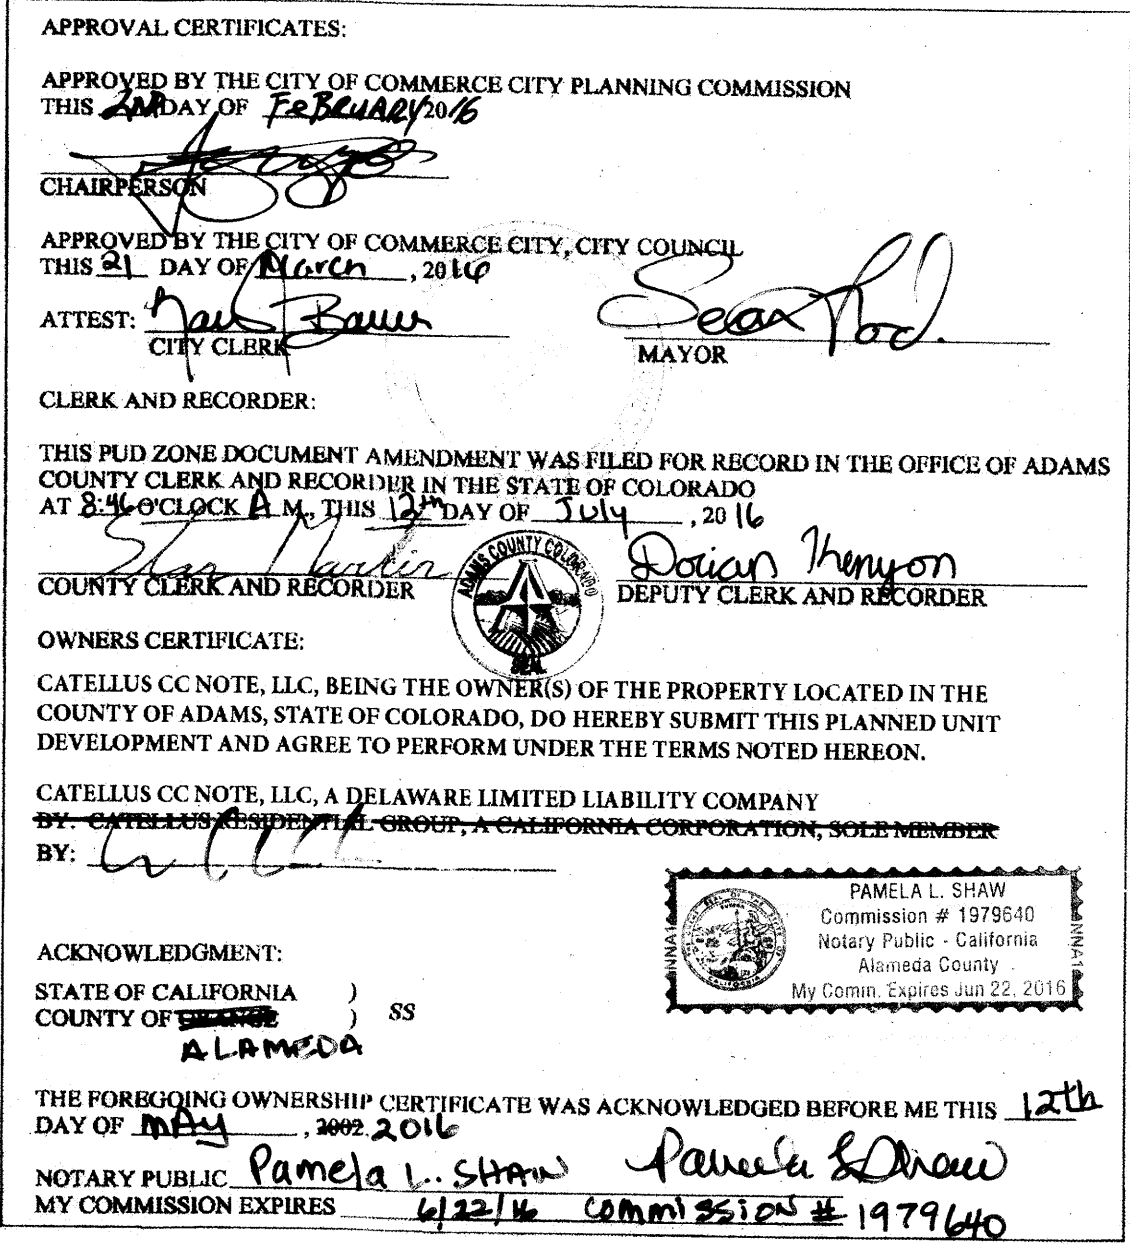 APPROVAL CERTIFICATES:
APPROVED BY THE CITY OF COMMERCE CITY PLANNING COMMISSION
THIS 2ND DAY OF FeBRUARY 2016
CHAIRPERSON
APPROVED BY THE CITY OF COMMERCE CITY, CITY COUNCIL
THIS 21 DAY OF March, 2016
ATTEST:
CITY CLERK
Sean Ford.
MAYOR
CLERK AND RECORDER:
THIS PUD ZONE DOCUMENT AMENDMENT WAS FILED FOR RECORD IN THE OFFICE OF ADAMS
COUNTY CLERK AND RECORDER IN THE STATE OF COLORADO
AT 8:46 O'CLOCK A M., THIS 12th DAY OF July, 2016
Stan Martin
COUNTY CLERK AND RECORDER
ADAMS COUNTY COLORADO
SEAL
Dorian Kenyon
DEPUTY CLERK AND RECORDER
OWNERS CERTIFICATE:
CATELLUS CC NOTE, LLC, BEING THE OWNER(S) OF THE PROPERTY LOCATED IN THE
COUNTY OF ADAMS, STATE OF COLORADO, DO HEREBY SUBMIT THIS PLANNED UNIT
DEVELOPMENT AND AGREE TO PERFORM UNDER THE TERMS NOTED HEREON.
CATELLUS CC NOTE, LLC, A DELAWARE LIMITED LIABILITY COMPANY
BY: CATELLUS RESIDENTIAL GROUP, A CALIFORNIA CORPORATION, SOLE MEMBER
BY:
PAMELA L. SHAW
Commission # 1979640
Notary Public - California
Alameda County
My Comm. Expires Jun 22, 2016
NNA1
NNA1
ACKNOWLEDGMENT:
STATE OF CALIFORNIA )
COUNTY OF ORANGE ) SS
ALAMEDA
THE FOREGOING OWNERSHIP CERTIFICATE WAS ACKNOWLEDGED BEFORE ME THIS 12th
DAY OF MAY, 2002. 2016
NOTARY PUBLIC Pamela L. SHAW Pamela L Shaw
MY COMMISSION EXPIRES 6/22/16 Commission # 1979640